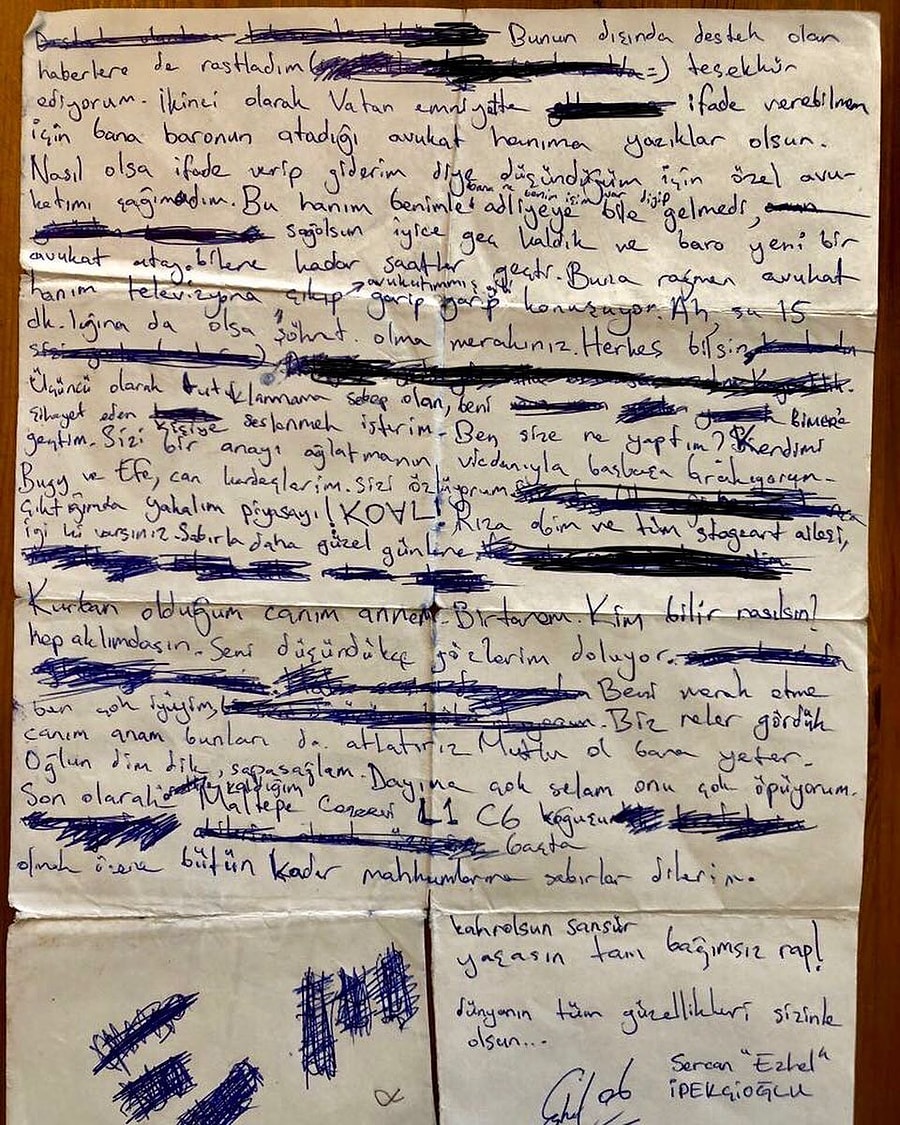 Bunun dışında destek olan
haberlere de rastladım ( =) teşekkür
ediyorum. İkinci olarak Vatan emniyette ifade verebilmem
için bana baronun atadığı avukat hanıma yazıklar olsun.
Nasıl olsa ifade verip giderim diye düşündüğüm için özel avu-
katımı çağırmadım. Bu hanım benimle bana ne benim işim var diyip adliyeye bile gelmedi,
sağolsun iyice geç kaldık ve baro yeni bir
avukat atayabilene kadar saatler geçti. Buna rağmen avukat
hanım televizyona çıkıp avukatımmış gibi garip garip konuşuyor. Ah, şu 15
dk.lığına da olsa şöhret olma merakınız. Herkes bilsin
Üçüncü olarak tutuklanmama sebep olan, beni BİMER'e
şikayet eden kişiye seslenmek isterim. Ben size ne yaptım? Kendimi
geçtim. Sizi bir anayı ağlatmanın vicdanıyla başbaşa bırakıyorum.
Bugy ve Efe, can kardeşlerim. Sizi özlüyorum
çıktığımda yakalım piyasayı! KOVL! Rıza abim ve tüm stageart ailesi,
iyi ki varsınız. Sabırla daha güzel günlere
Kurban olduğum canım annem. Birtanem. Kim bilir nasılsın?
hep aklımdasın. Seni düşündükçe gözlerim doluyor.
Beni merak etme
ben çok iyiyim, Biz neler gördük
canım anam bunları da atlatırız Mutlu ol bana yeter.
Oğlun dim dik, sapasağlam. Dayıma çok selam onu çok öpüyorum.
Son olarak kaldığım Maltepe Cezaevi L1 C6 koğuşu
başta
olmak üzere bütün kader mahkumlarına sabırlar dilerim.
kahrolsun sansür
yaşasın tam bağımsız rap!
dünyanın tüm güzellikleri sizinle
olsun...
Sercan "Ezhel"
İPEKÇİOĞLU